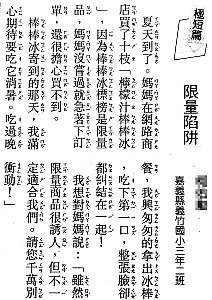 極短篇
限量陷阱
嘉義縣義竹國小三年二班
夏天到了。媽媽在網路商
店買了十枝「檸檬汁棒棒冰
」，因為棒棒冰標榜是限量
品，媽媽沒嘗過就急著下訂
單，還很擔心買不到。
棒棒冰寄到的那天，我滿
心期待要吃它消暑。吃過晚
餐，我興匆匆的拿出冰棒
，吃下第一口，整張臉卻
都糾結在一起！
我想對媽媽說：「雖然
限量商品很誘人，但不一
定適合我們。請您千萬別
衝動！」